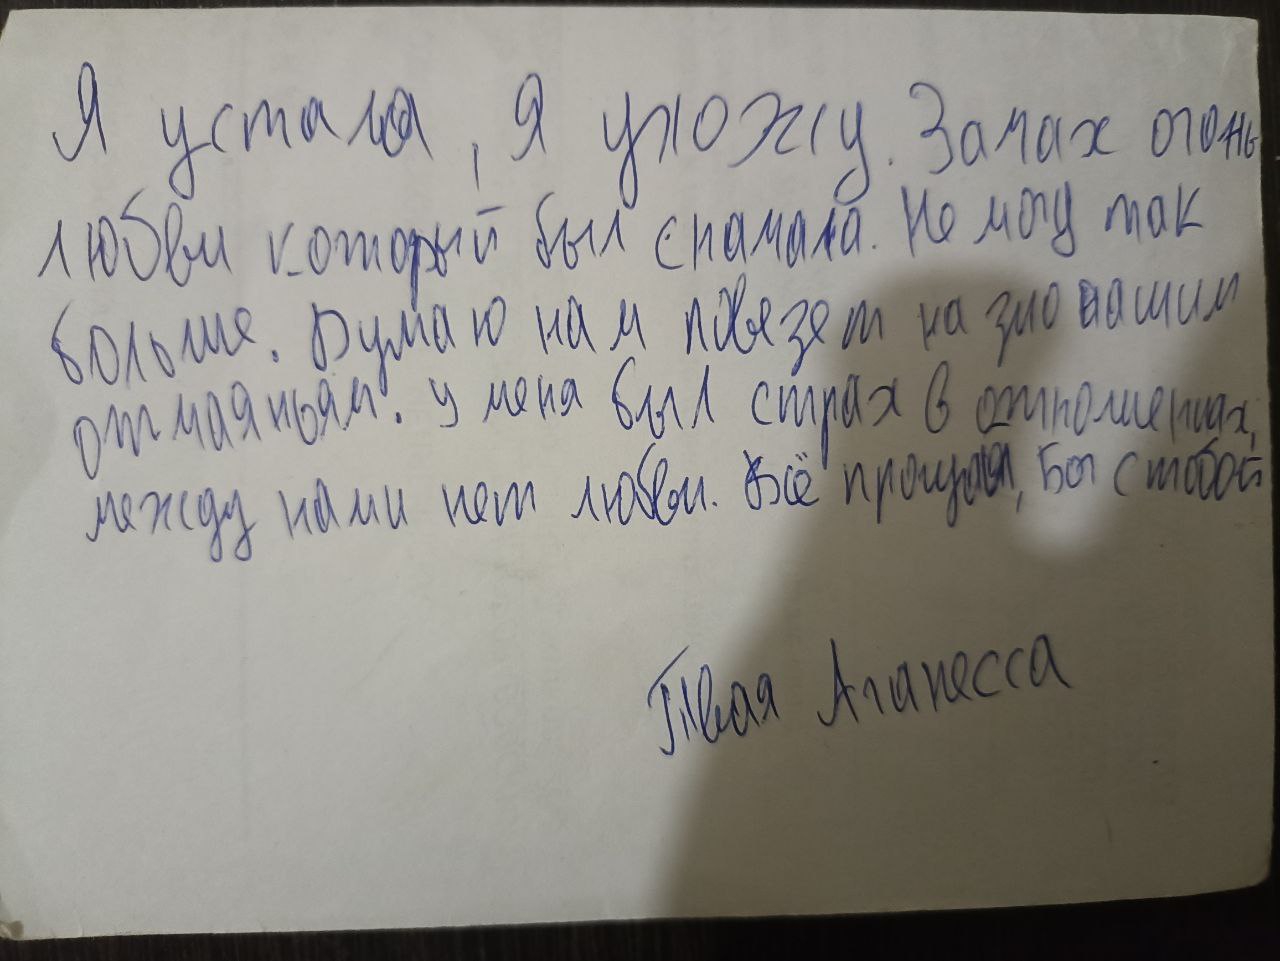 Я устала, я ухожу. Запах огонь
любви который был сначала. Не могу так
больше. Думаю нам повезет на зло нашим
отчаяньям. У меня был страх в отношениях,
между нами нет любви. Всё прошла, Бог с тобой
Твоя Аганесса